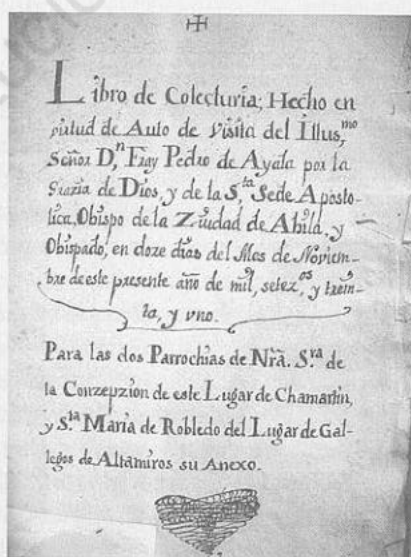 Libro de Colecturia; Hecho en
virtud de Auto de Visita del Illus,mo
Señor D,n Fray Pedro de Ayala por la
Grazia de Dios, y de la S,ta Sede Aposto-
lica, Obispo de la Ziudad de Abila, y
Obispado, en doze dias del Mes de Noviem-
bre de este presente año de mil, setez,os y trein-
ta, y uno.
Para las dos Parrochias de Nrã. S.ra de
la Conzepzion de este Lugar de Chamartin,
y S.ta Maria de Robledo del Lugar de Gal-
legos de Altamiros su Anexo.